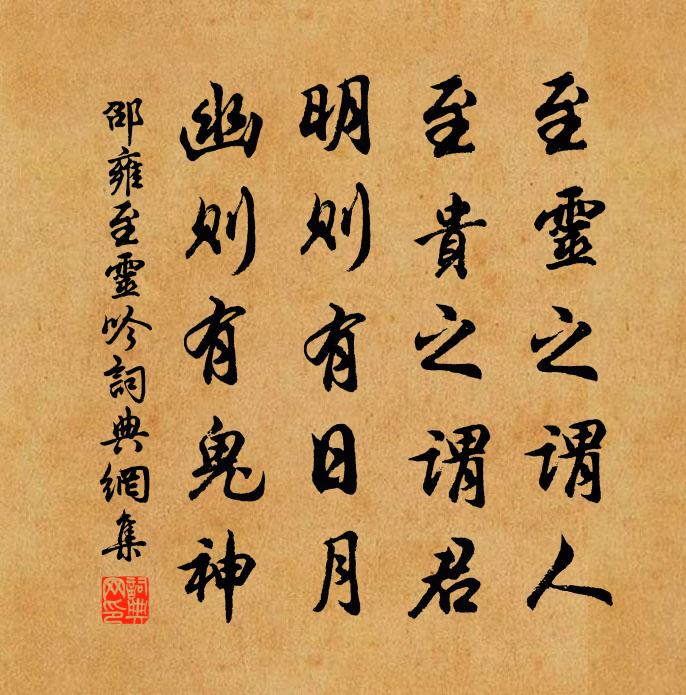 至靈之谓人
至貴之谓君
明则有日月
幽则有鬼神
邵雍至靈吟詞典網集
詞典網印